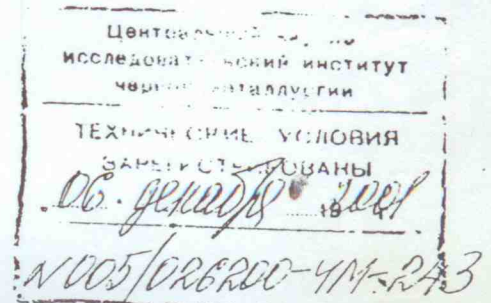 Центральный научно
исследовательский институт
черной металлургии
ТЕХНИЧЕСКИЕ УСЛОВИЯ
ЗАРЕГИСТРИРОВАНЫ
06. декабря 2001
N005/026200-ЧМ-243